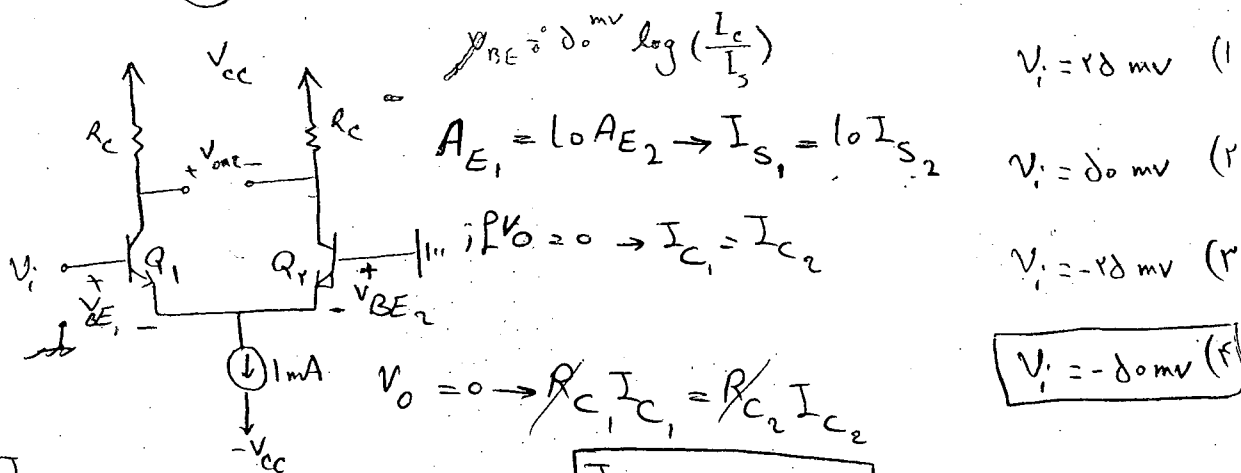 V_cc
R_C
R_C
+ V_out -
V_i
Q_1
Q_۲
+ V_BE_1 -
+ V_BE_2 -
1mA
-V_cc
V_BE = ۵۰ mv log (I_c / I_s)
A_E_1 = 10 A_E_2 → I_S_1 = 10 I_S_2
if V_0 = 0 → I_C_1 = I_C_2
V_0 = 0 → R_C_1 I_C_1 = R_C_2 I_C_2
V_i = ۲۵ mv (۱
V_i = ۵۰ mv (۲
V_i = -۲۵ mv (۳
V_i = -۵۰ mv (۴